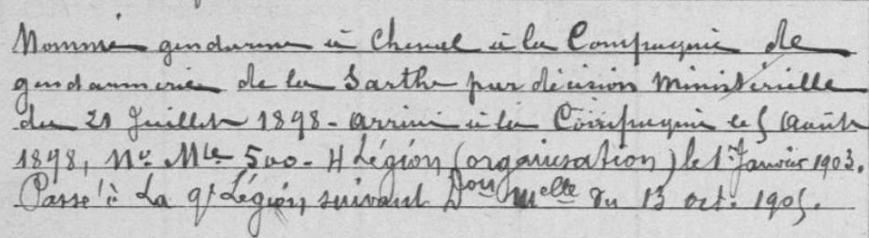 Nommé gendarme à Cheval à la Compagnie de
gendarmerie de la Sarthe par décision Ministérielle
du 21 Juillet 1898 - arrivé à la Compagnie le 5 Août
1898, No Mle 500 - 4 Légion (organisation) le 1er Janvier 1903.
Passé à La 9e Légion suivant Don Melle du 13 oct. 1905.